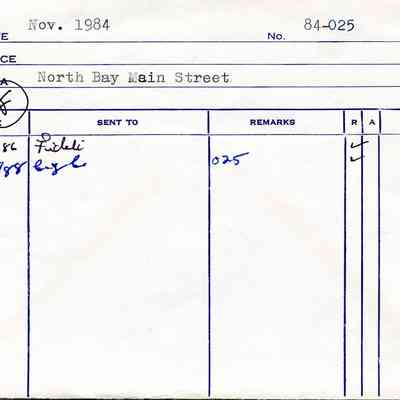 TE Nov. 1984 No. 84-025
CE
A North Bay Main Street
SENT TO REMARKS R A
86 ✓
/88 025 ✓